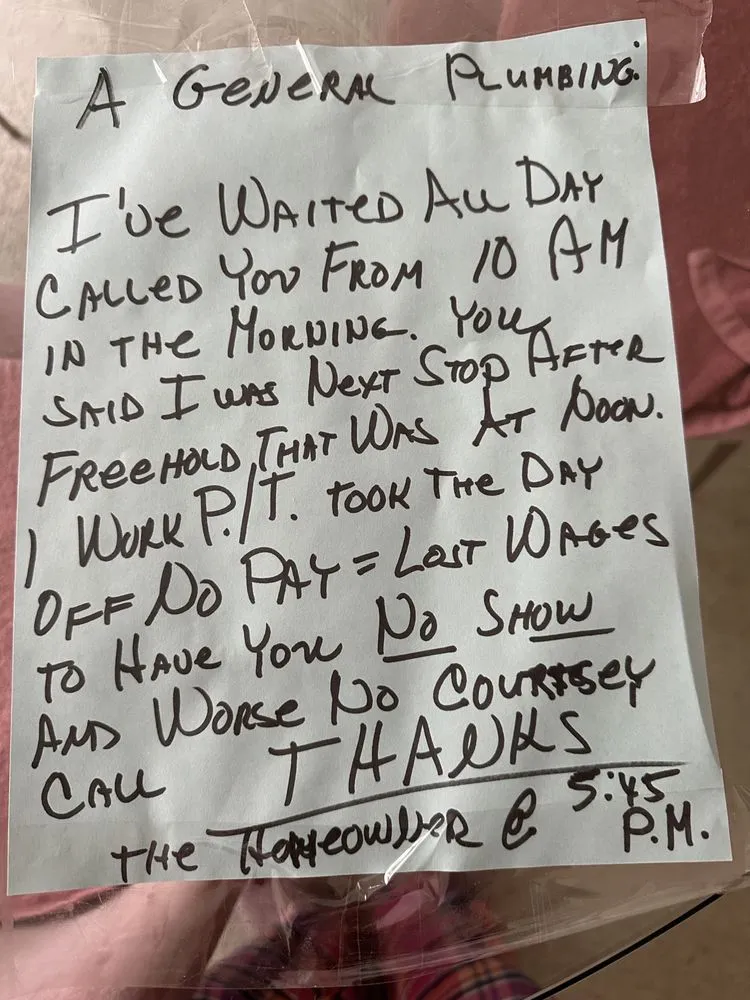 A GENERAL PLUMBING:
I'VE WAITED ALL DAY
CALLED YOU FROM 10 AM
IN THE MORNING. YOU
SAID I WAS NEXT STOP AFTER
FREEHOLD, THAT WAS AT NOON.
I WORK P./T. TOOK THE DAY
OFF NO PAY = LOST WAGES
TO HAVE YOU NO SHOW
AND WORSE NO COURTSEY
CALL THANKS
THE HOMEOWNER @ 5:45
P.M.